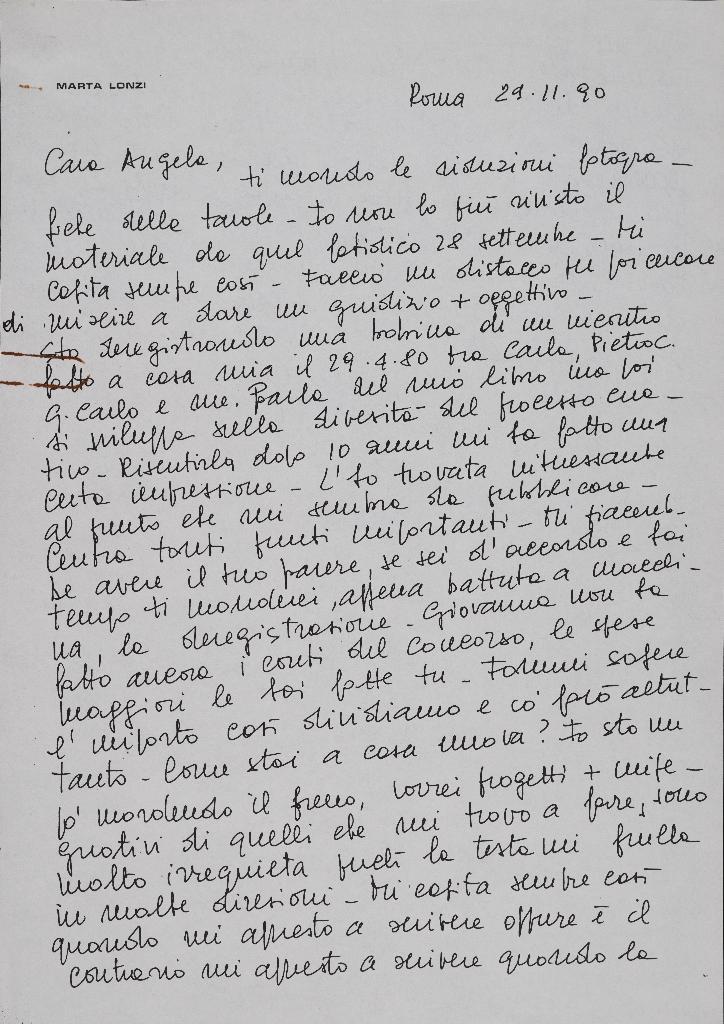 MARTA LONZI
Roma 29.11.90
Cara Angela, ti mando le riduzioni fotogra-
fiche delle tavole - Io non ho più rivisto il
materiale da quel fatidico 28 settembre - Mi
capita sempre così - Faccio un distacco per poi cercare
di riuscire a dare un giudizio + oggettivo -
Sto deregistrando una bobina di un incontro
fatto a casa mia il 29.4.80 tra Carla, Pietro C.
G. Carlo e me. Parla del mio libro ma poi
si sviluppa sulla diversità del processo crea-
tivo - Risentirla dopo 10 anni mi ha fatto una
certa impressione - L'ho trovata interessante
al punto che mi sembra da pubblicare -
Centra tanti punti importanti - Mi piacereb-
be avere il tuo parere, se sei d'accordo e hai
tempo ti manderei, appena battuta a macchi-
na, la deregistrazione - Giovanna non ha
fatto ancora i conti del concorso, le spese
maggiori le hai fatte tu - Fammi sapere
l'importo così dividiamo e io farò altret-
tanto - Come stai a casa nuova? Io sto un
po' mordendo il freno, vorrei progetti + impe-
gnativi di quelli che mi trovo a fare, sono
molto irrequieta perché la testa mi frulla
in molte direzioni - Mi capita sempre così
quando mi appresto a scrivere oppure è il
contrario mi appresto a scrivere quando la